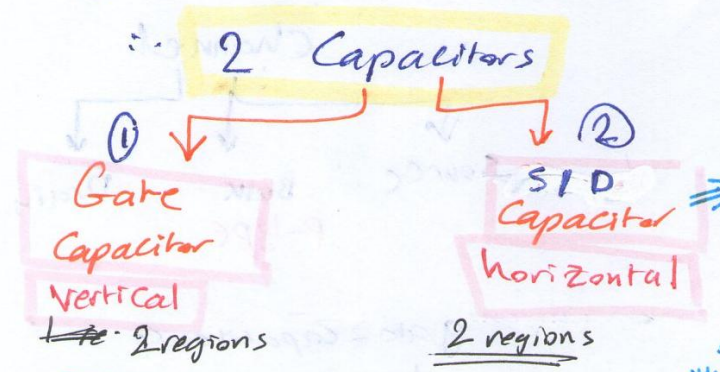 ∴ 2 Capacitors
①
Gate
Capacitor
Vertical
2 regions
②
S/D
Capacitor
horizontal
2 regions